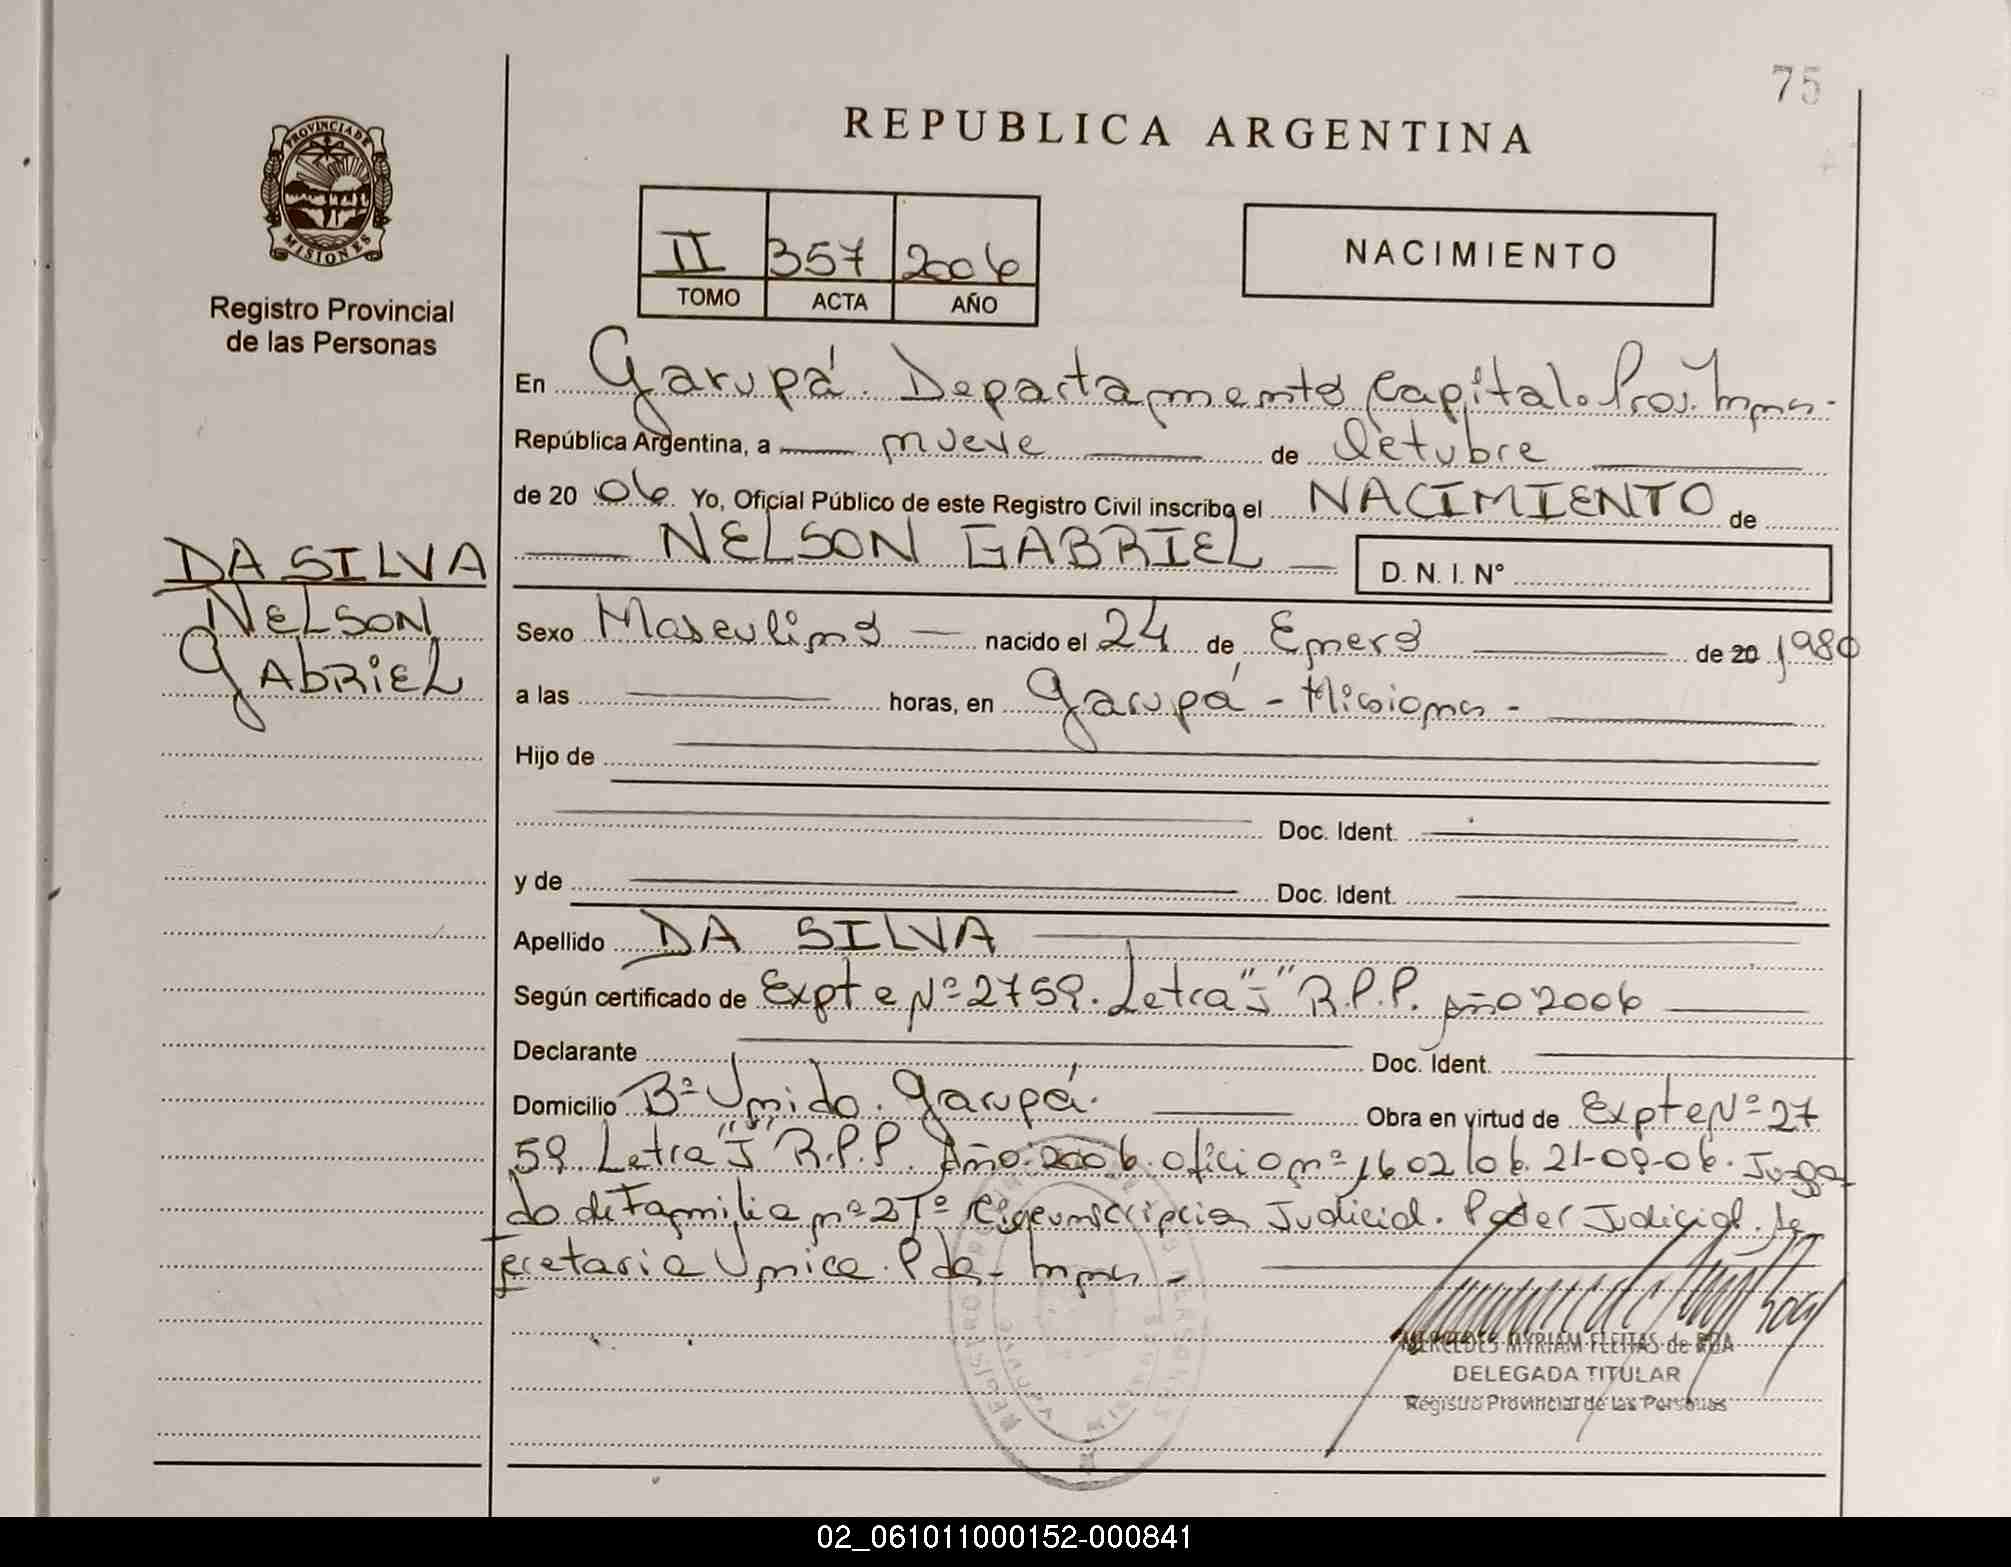 75
REPUBLICA ARGENTINA
PROVINCIA DE
MISIONES
Registro Provincial
de las Personas
II 357 2006
TOMO ACTA AÑO
NACIMIENTO
En Garupá. Departamento Capital. Prov. Mnes-
República Argentina, a nueve de Octubre
de 20 06 Yo, Oficial Público de este Registro Civil inscribo el NACIMIENTO de
NELSON GABRIEL D. N. I. N°
DA SILVA
NELSON
GABRIEL
Sexo Masculino nacido el 24 de Enero de 20 1980
a las horas, en Garupá - Misiones -
Hijo de
Doc. Ident.
y de Doc. Ident.
Apellido DA SILVA
Según certificado de Expte Nº 2759. Letra "J" R.P.P. Año 2006
Declarante Doc. Ident.
Domicilio Bº Unido. Garupá. Obra en virtud de Expte Nº 27
59 Letra "J" R.P.P. Año 2006. Oficio nº 1602/06. 21-09-06. Juzga
do de Familia nº 2 Circunscripcion Judicial. Poder Judicial. Se
cretaria Unica. Pdas- Mnes -
MERCEDES MYRIAM FLEITAS de ROA
DELEGADA TITULAR
Registro Provincial de las Personas
02_061011000152-000841